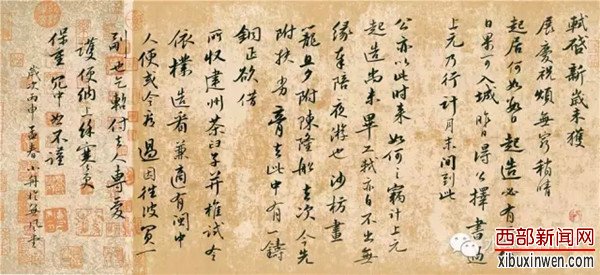 軾啓新歲未獲
展慶祝頌無窮稍晴
起居何如數日起造必有
日果可入城昨日得公擇書過
上元乃行計月末間到此
公亦以此時来如何々竊計上元
起造尚未畢工軾亦自不出無
緣奉陪夜遊也沙枋畫
籠旦夕附陳隆船去次今先
附扶劣膏去此中有一鑄
銅匠欲借
所収建州茶臼子并椎試令
依樣造看兼適有閩中
人便或令看過因往彼買一
副也乞暫付去人專愛
護便納上餘寒更
保重冗中恕不謹
歲次丙申孟春
西部新闻网
xibuxinwen.com